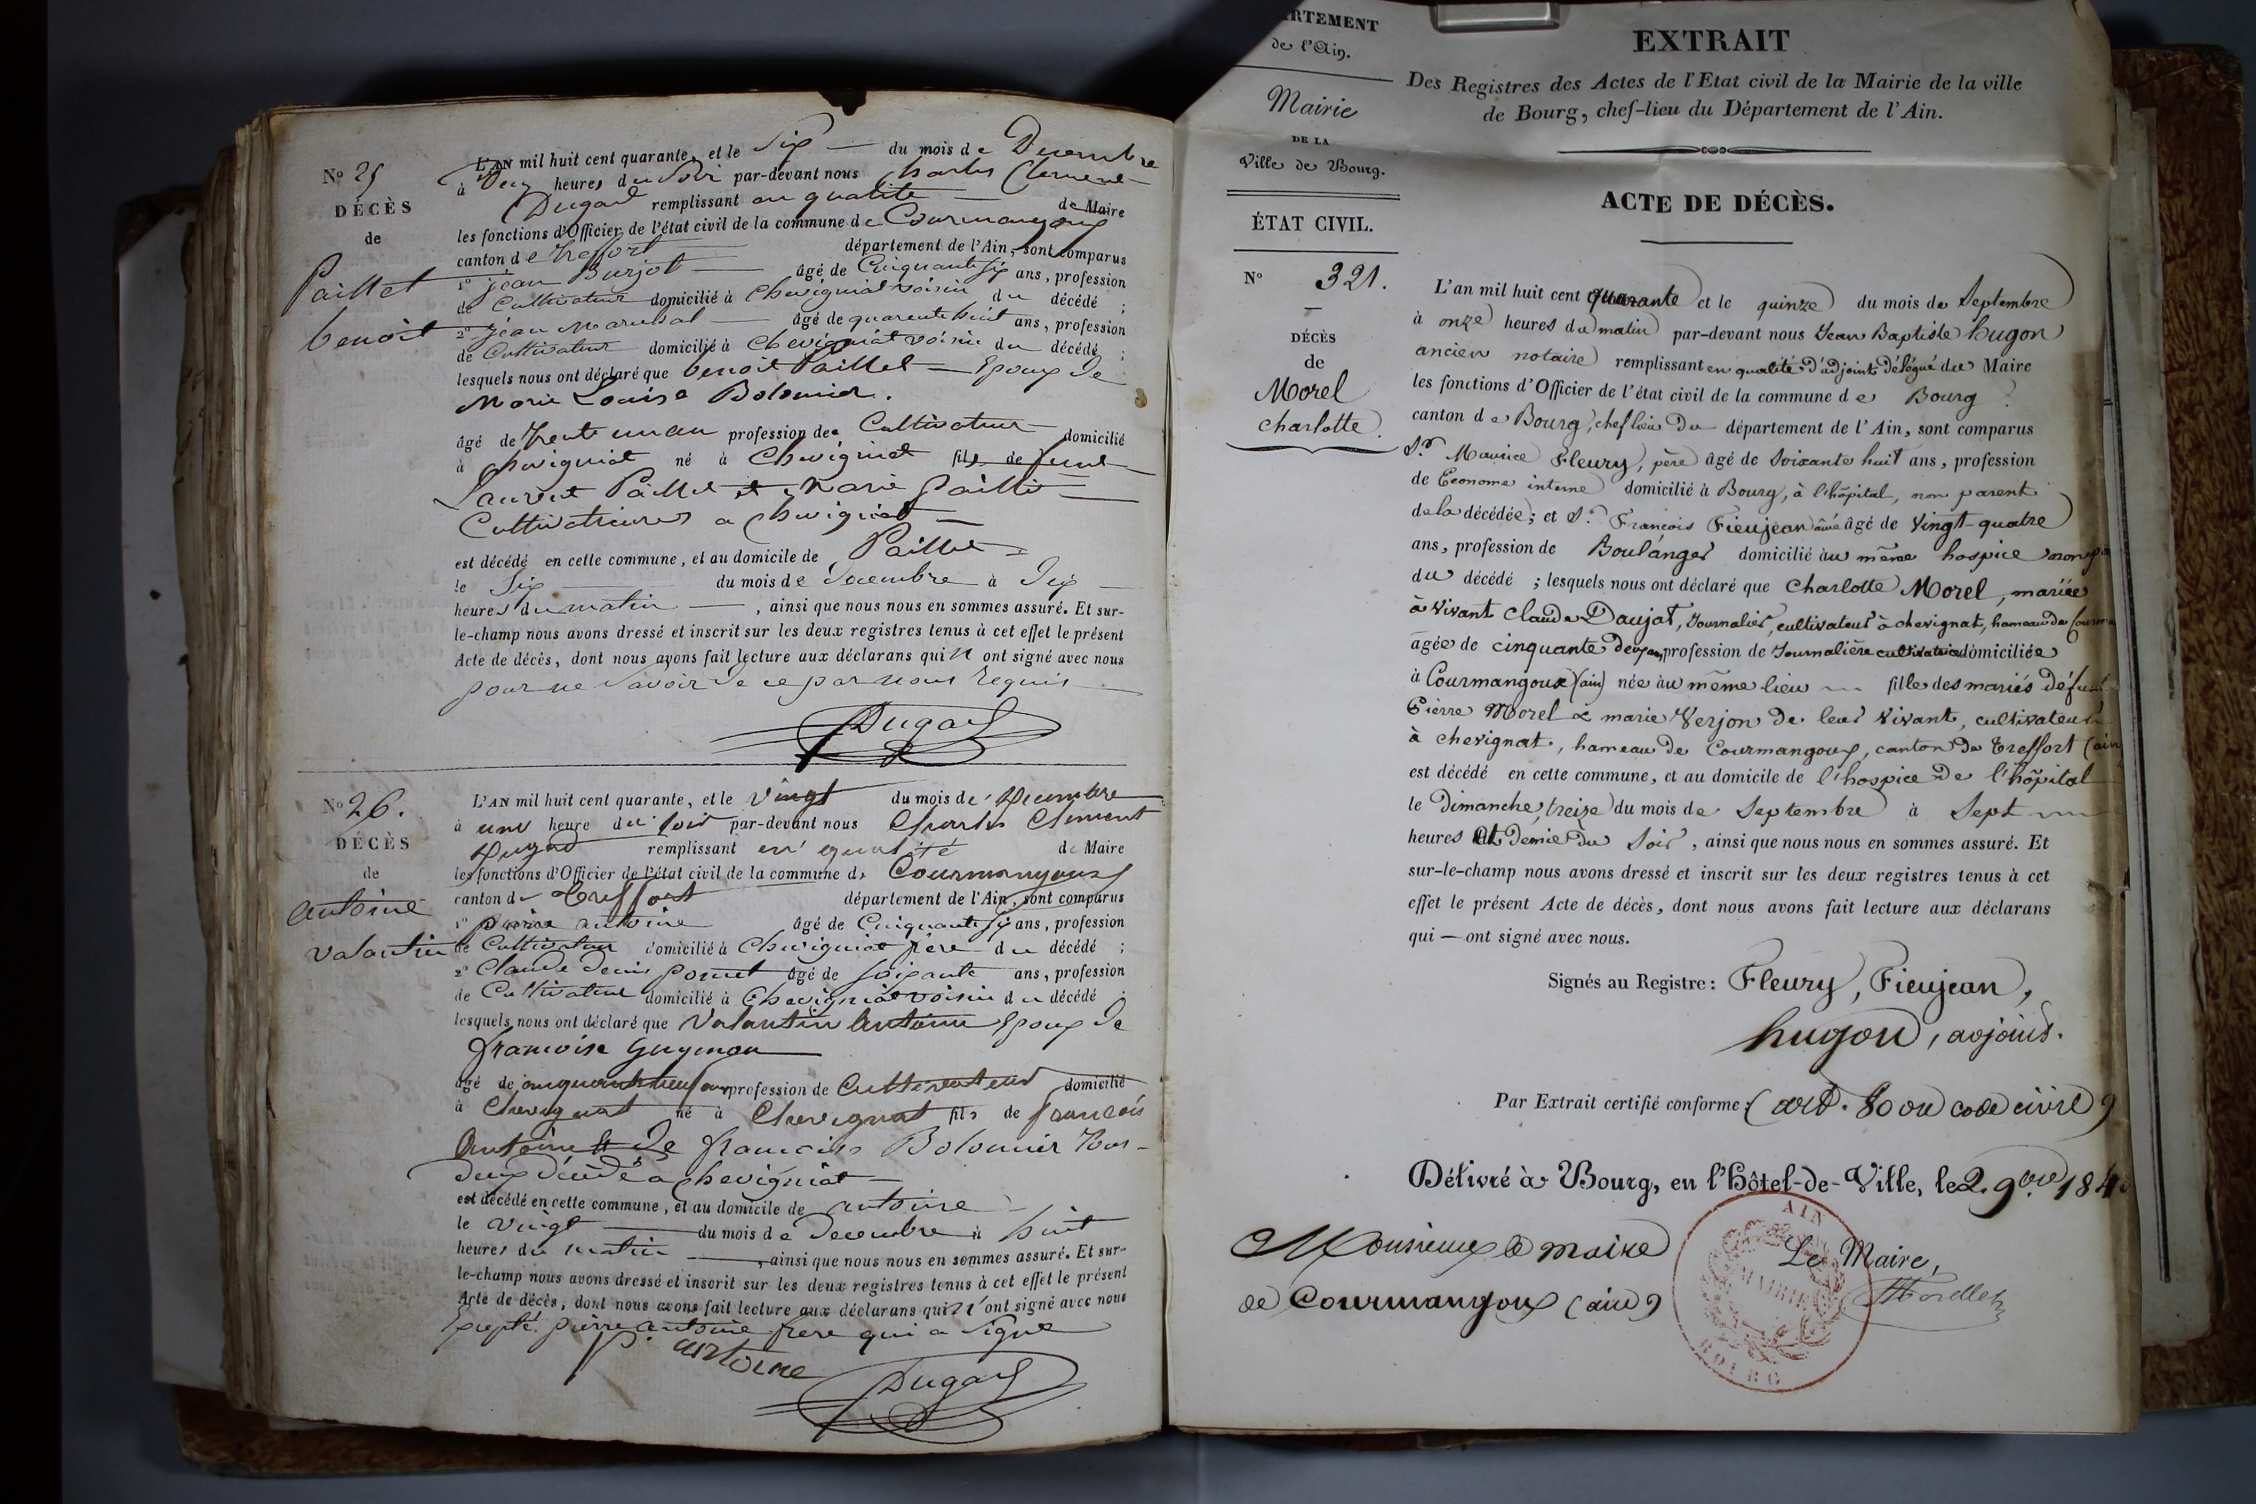 No 25
DÉCÈS
de
Paillet
benoit
L'AN mil huit cent quarante, et le Six du mois de Décembre
à Deux heures du Soir par-devant nous Charles Clement
Dugad remplissant en qualité de Maire
les fonctions d'Officier de l'état civil de la commune de Courmangoux
canton de treffort département de l'Ain, sont comparus
1° jean Burjot âgé de Cinquante Six ans, profession
de Cultivateur domicilié à Chevigniat voisin du décédé ;
2° jean marechal âgé de quarente huit ans, profession
de Cultivateur domicilié à Chevigniat voisin du décédé ;
lesquels nous ont déclaré que benoit Paillet Epoux de
Marie Louise Bolomier.
âgé de trente un an profession de Cultivateur domicilié
à Chevigniat né à Chevigniat fils de feu
Laurent Paillet et Marie Paillet
Cultivateurs a Chevigniat
est décédé en cette commune, et au domicile de Paillet
le Six du mois de Décembre à Dix
heures du matin, ainsi que nous nous en sommes assuré. Et sur-
le-champ nous avons dressé et inscrit sur les deux registres tenus à cet effet le présent
Acte de décès, dont nous avons fait lecture aux déclarans qui n ont signé avec nous
pour ne Savoir de ce par nous Requis
Dugad
No 26.
DÉCÈS
de
antoine
valantin
L'AN mil huit cent quarante, et le vingt du mois de Decembre
à une heure du Soir par-devant nous Charles Clement
Dugad remplissant en qualité de Maire
les fonctions d'Officier de l'état civil de la commune de Courmangoux
canton de Treffort département de l'Ain, sont comparus
1° pierre antoine âgé de Cinquante Six ans, profession
de Cultivateur domicilié à Chevigniat frere du décédé ;
2° Claude Denis Pomet âgé de Soixante ans, profession
de Cultivateur domicilié à Chevigniat voisin du décédé ;
lesquels nous ont déclaré que Valantin Antoine Epoux de
francoise Guymon
âgé de cinquante neuf ans profession de Cultivateur domicilié
à Chevigniat né à Chevignat fils de francois
Antoine et De francoise Bolomier Tous
deux décédé a Chevigniat
est décédé en cette commune, et au domicile de antoine
le vingt du mois de Decembre à huit
heures du matin, ainsi que nous nous en sommes assuré. Et sur-
le-champ nous avons dressé et inscrit sur les deux registres tenus à cet effet le présent
Acte de décès, dont nous avons fait lecture aux déclarans qui n'ont signé avec nous
Excepté pierre antoine frere qui a Signé
P. antoine
Dugad
ARTEMENT
de l'Ain.
Mairie
DE LA
Ville de Bourg.
ÉTAT CIVIL.
No 321.
DÉCÈS
de
Morel
charlotte.
EXTRAIT
Des Registres des Actes de l'Etat civil de la Mairie de la ville
de Bourg, chef-lieu du Département de l'Ain.
ACTE DE DÉCÈS.
L'an mil huit cent quarante et le quinze du mois de Septembre
à onze heures du matin par-devant nous Jean Baptiste hugon
ancien notaire remplissant en qualité d'adjoint délégué du Maire
les fonctions d'Officier de l'état civil de la commune de Bourg
canton de Bourg, chef lieu Du département de l'Ain, sont comparus
Sr. Maurice Fleury, père âgé de Soixante huit ans, profession
de Econome interne domicilié à Bourg, à l'hôpital, non parent
de la décédée; et Sr. François Fieujean âiné âgé de Vingt-quatre
ans, profession de Boulanger domicilié au même hospice
du décédé ; lesquels nous ont déclaré que Charlotte Morel, mariée
à vivant Claude Daujat, Journalier, cultivateur à chevignat, hameau de
âgée de cinquante deux ans profession de Journalière cultivatrice domiciliée
à Courmangoux (ain) née au même lieu fille des mariés
Pierre Morel & marie Verjon de leur vivant, cultivateurs
à chevignat, hameau de Courmangoux, canton de treffort (ain
est décédé en cette commune, et au domicile de l'hospice de l'hôpital
le Dimanche, treize du mois de Septembre à Sept
heures et Demie du Soir, ainsi que nous nous en sommes assuré. Et
sur-le-champ nous avons dressé et inscrit sur les deux registres tenus à cet
effet le présent Acte de décès, dont nous avons fait lecture aux déclarans
qui — ont signé avec nous.
Signés au Registre: Fleury, Fieujean,
hugon, adjoint.
Par Extrait certifié conforme: (art. 80 du code civil)
Délivré à Bourg, en l'Hôtel-de-Ville, le 2. 9bre 184
Le Maire,
AIN
MAIRIE
BOURG
Monsieur le maire
de Courmangoux (ain)